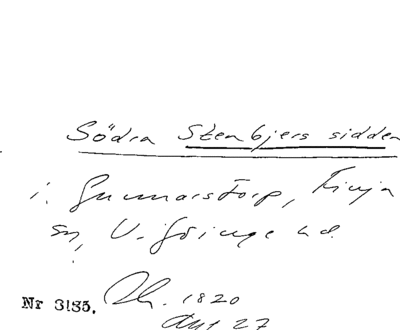 Södra Stenbjers sidden
i. Gunnarstorp, Finja
sn, V. Göinge hd.
Nr 3135. Dh. 1820
Akt 27